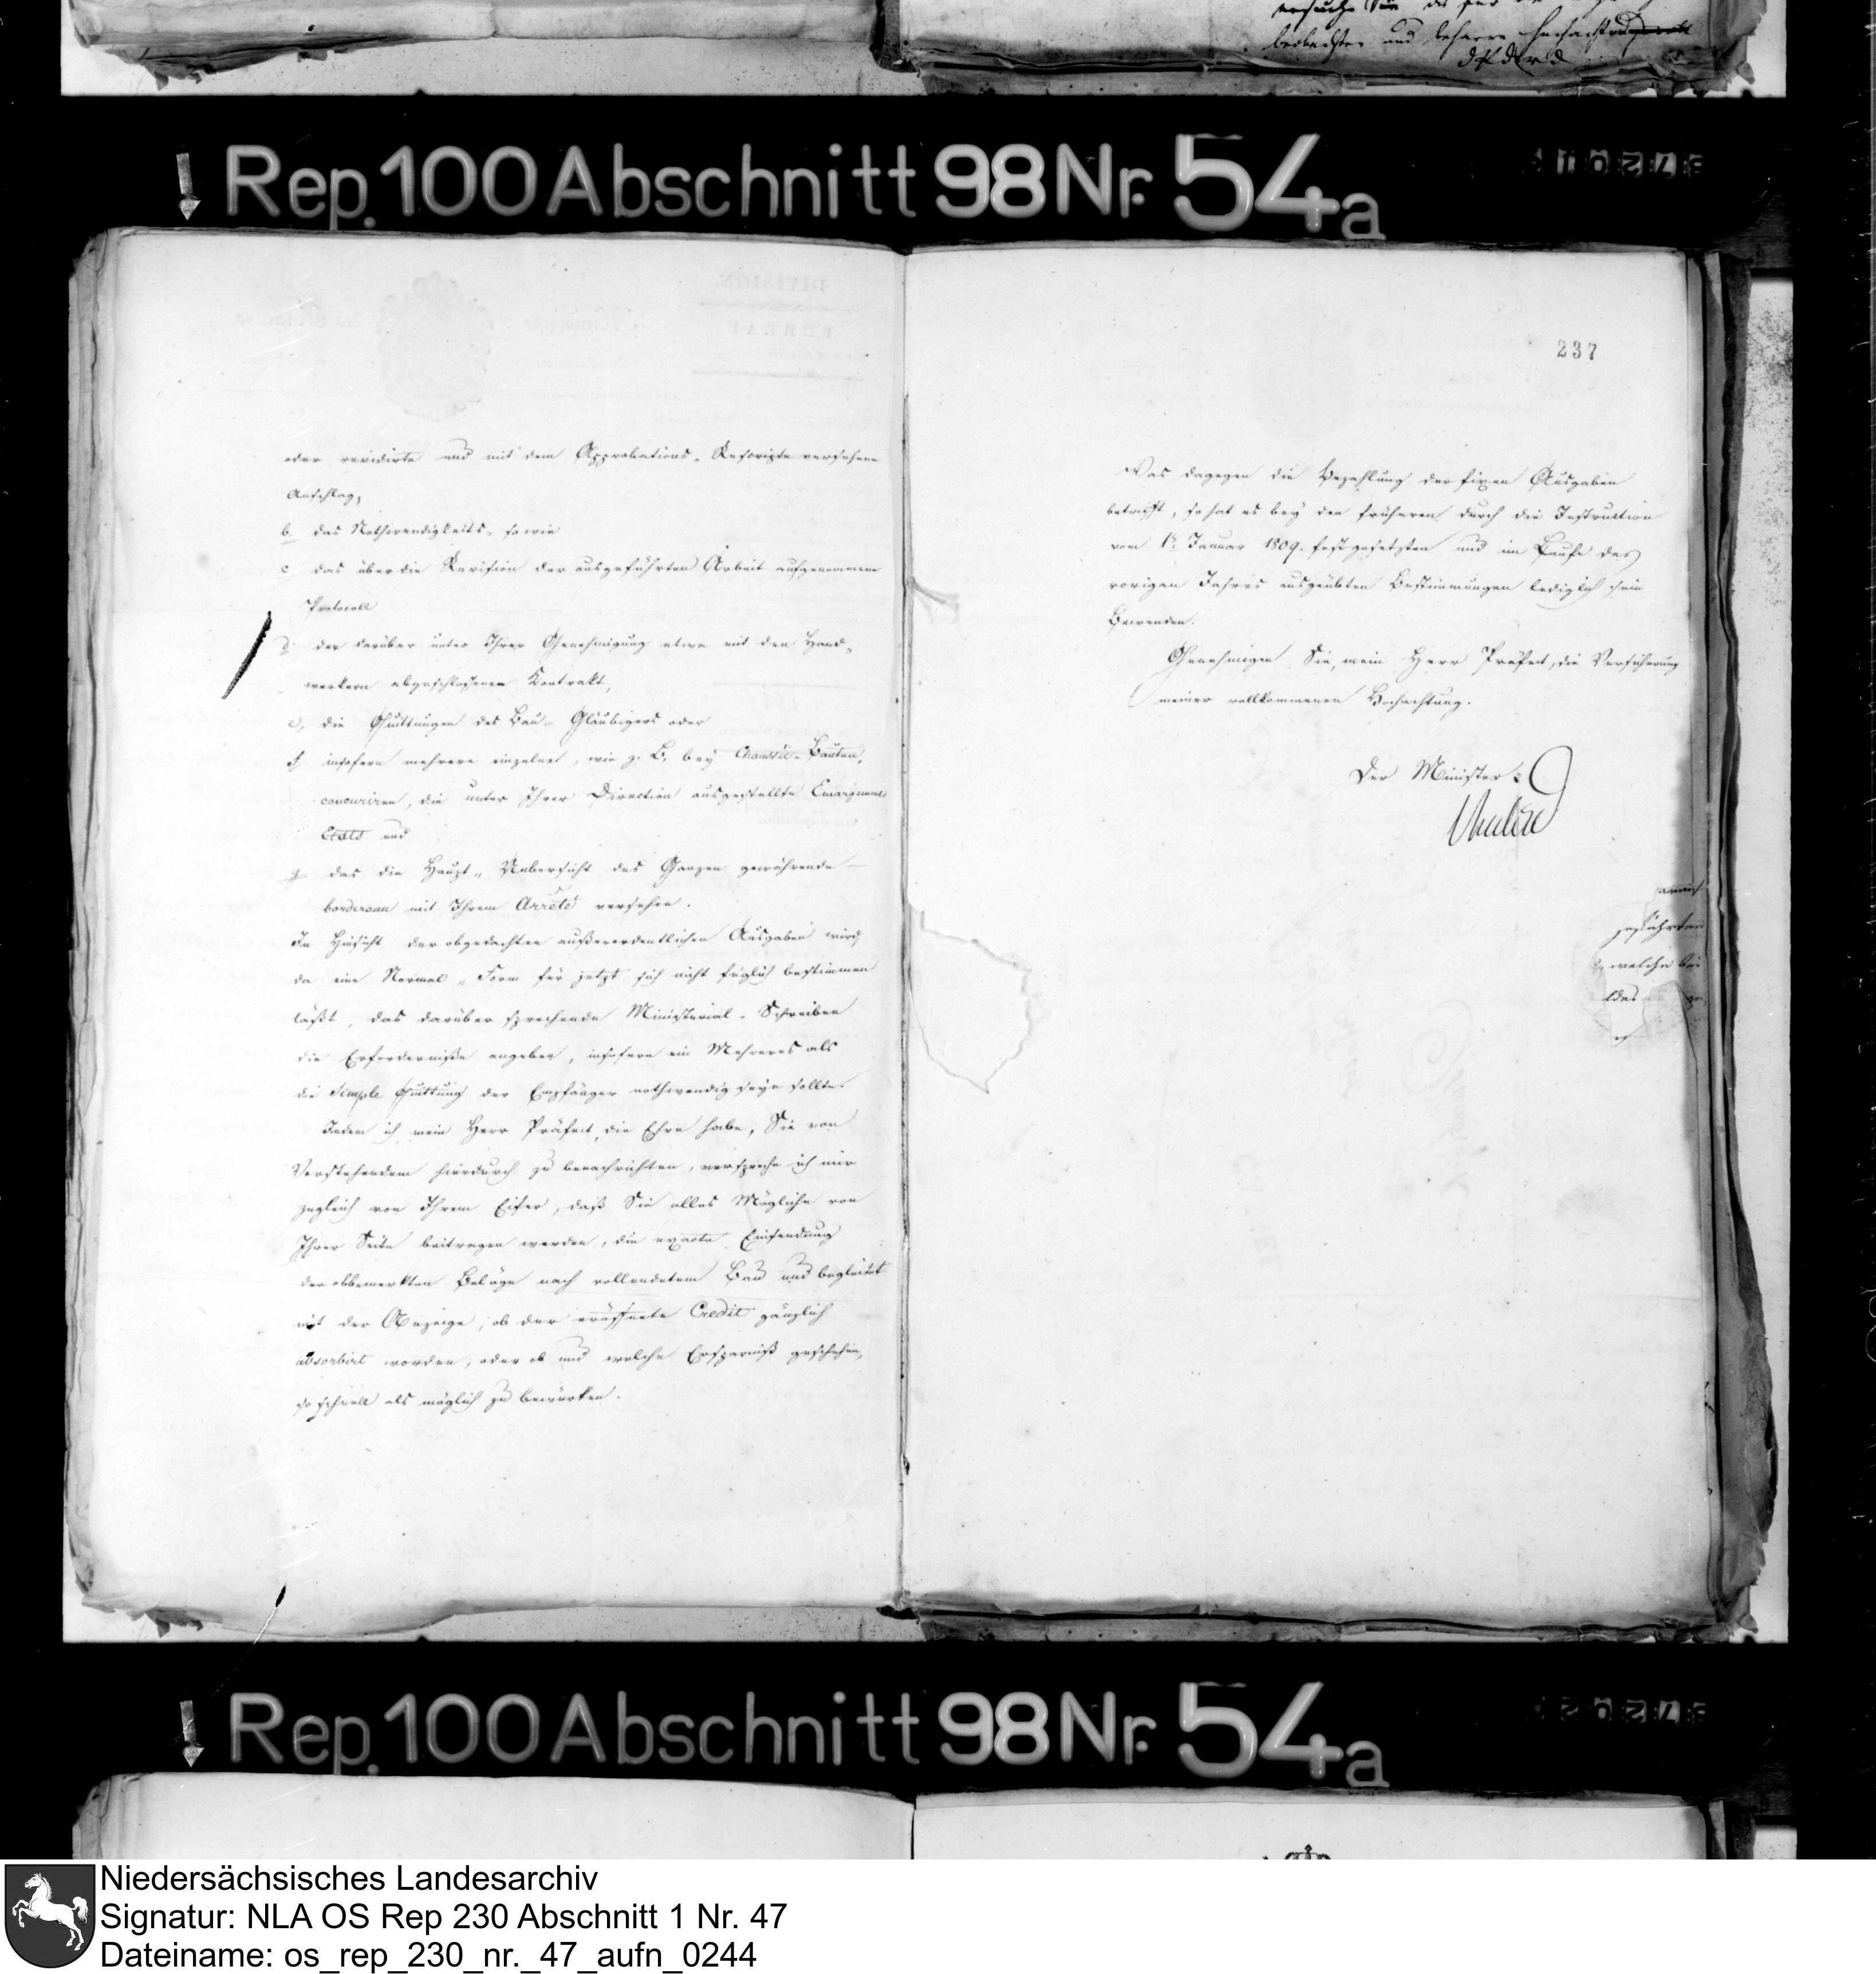 beobachten und beharre
Rep. 100 Abschnitt 98 Nr. 54a
237
oder revidirte und mit dem Approbations-Rescripte versehene
Anschlag,
b. das Nothwendigkeits- sowie
c das über die Revision der ausgeführten Arbeit aufgenommene
Protocoll
d. der darüber unter Ihrer Genehmigung etwa mit den Hand-
werkern abgeschlossenen Kontrakt,
e, die Quittungen des Bau-Gläubigers oder
f. insofern mehrere einzelne, wie z. B. bey Chaussée-Bauten,
concuriren, die unter Ihrer Direction ausgestellte Emargements
Etats und
g. das die Haupt-Uebersicht des Ganzen gewährende
bordereau mit Ihrem Arrêté versehen.
In Hinsicht der obgedachten außerordentlichen Ausgaben wird,
da eine Normal-Form für jetzt sich nicht füglich bestimmen
läßt, das darüber sprechende Ministerial-Schreiben
die Erforderniße angeben, insofern ein Mehreres als
die simple Quittung der Empfänger nothwendig seyn sollte.
Indem ich, mein Herr Präfect, die Ehre habe, Sie von
Vorstehendem hierdurch zu benachrichten, verspreche ich mir
zugleich von Ihrem Eifer, daß Sie alles Mögliche von
Ihrer Seite beitragen werden, die exacte Einsendung
der obbemerkten Beläge nach vollendetem Bau und begleitet
mit der Anzeige, ob der eröffnete Credit gänzlich
absorbirt worden, oder ob und welche Ersparniß geschehen,
so schnell als möglich zu bewürken.
Was dagegen die Bezahlung der fixen Ausgaben
betrifft, so hat es bey den früheren durch die Instruction
vom 1n Januar 1809. festgesetzten und im Laufe des
vorigen Jahres ausgeübten Bestimmungen lediglich sein
Bewenden.
Genehmigen Sie, mein Herr Präfect, die Versicherung
meiner vollkommenen Hochachtung.
Der Minister
geführten
welche bei
Rep. 100 Abschnitt 98 Nr. 54a
Niedersächsisches Landesarchiv
Signatur: NLA OS Rep 230 Abschnitt 1 Nr. 47
Dateiname: os_rep_230_nr._47_aufn_0244